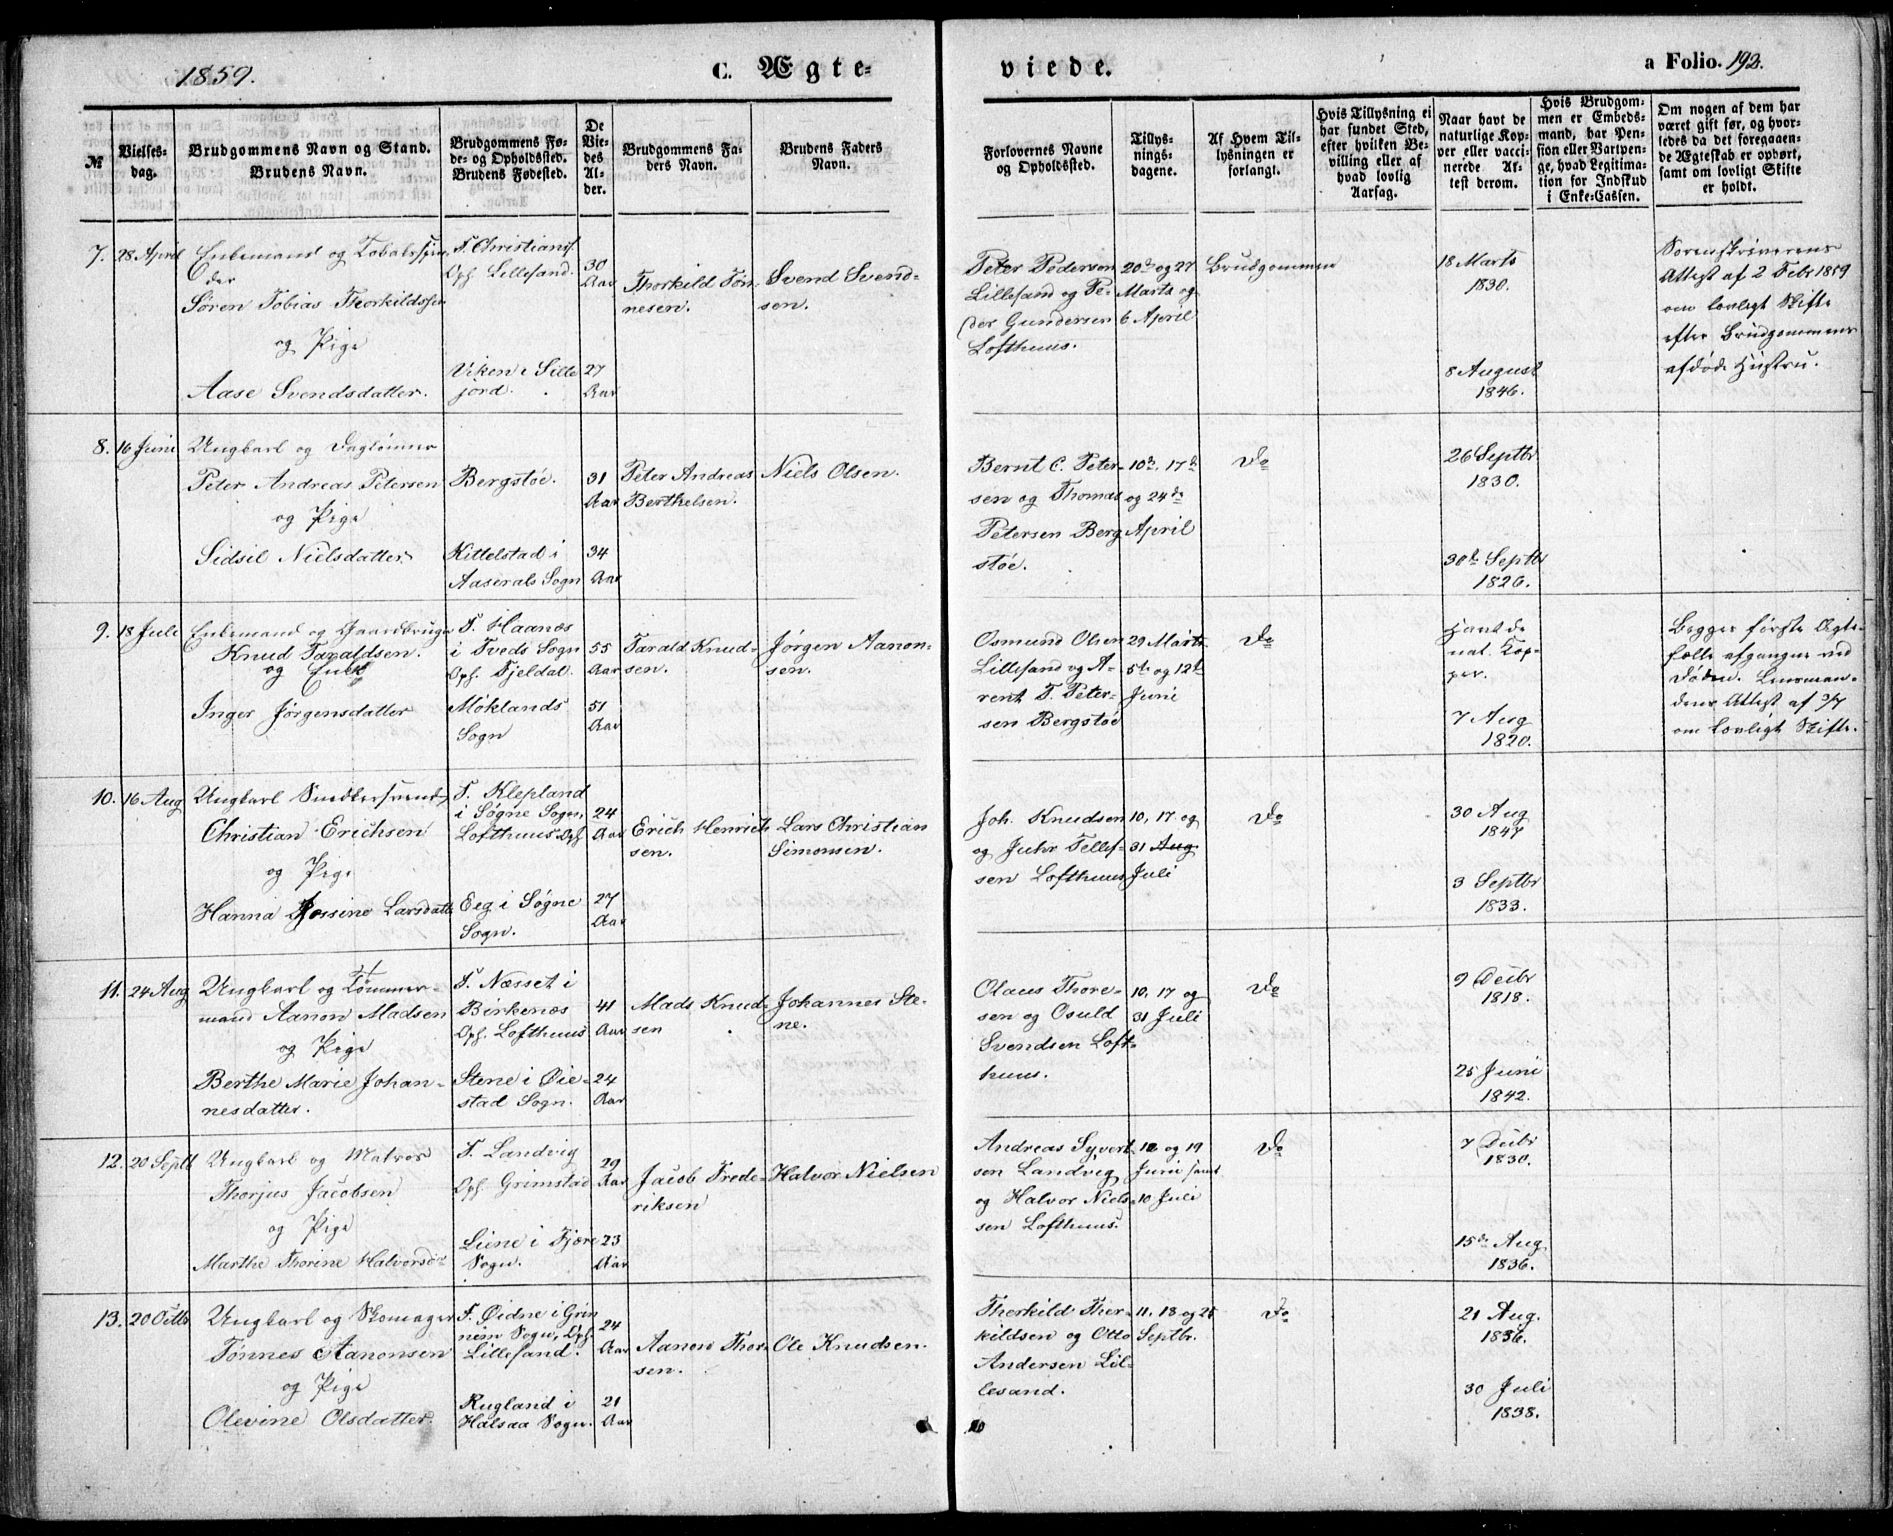 1859.
C. Ægte-
viede.
a Folio. 192.
№
Vielses-
dag.
Brudgommens Navn og Stand.
Brudens Navn.
Brudgommens Fø-
de- og Opholdssted.
Brudens Fødested.
De
Vie-
des
Al-
der.
Brudgommens Fa-
ders Navn.
Brudens Faders
Navn.
Forlovernes Navne
og Opholdssted.
Tillys-
nings-
dagene.
Af Hvem Til-
lysningen er
forlangt.
Hvis Tillysning ei
har fundet Sted,
efter hvilken Be-
villing eller af
hvad lovlig
Aarsag.
Naar havt de
naturlige Kop-
per eller vacci-
nerede At-
test derom.
Hvis Brudgom-
men er Embeds-
mand, har Pen-
sion eller Vartpen-
ge, hvad Legitima-
tion for Indskud
i Enke-Cassen.
Om nogen af dem har
været gift før, og hvor-
ledes da det foregaaen-
de Ægteskab er ophørt,
samt om lovligt Skifte
er holdt.
7.
28 April
Enkemand og Tobaksspin-
der
Søren Tobias Thorkildssen
og Pige
Aase Svendsdatter.
F. Christians.
Oph. Lillesand.
Viken i Sille
jord.
30
Aar
27
Aar
Thorkild Tøn-
nesen.
Svend Svend-
sen.
Peter Pedersen
Lillesand og Pe-
der Gundersen
Lofthuus.
20de og 27
Marts og
6 April
Brudgommen
18 Marts
1830.
8 August
1846.
Sorenskriverens
Attest af 2 Febr 1859
om lovligt Skifte
efter Brudgommens
afdøde Hustru.
8.
16 Juni
Ungkarl og Daglønner
Peter Andreas Petersen
og Pige
Sidsil Nielsdatter
Bergstøe.
Kittelstad i
Aaserals Sogn
31
Aar
34
Aar
Peter Andreas
Berthelsen.
Niels Olsen.
Bernt C. Peter-
sen og Thomas
Petersen Berg
støe.
10de, 17de
og 24de
April
Do
26 Septbr
1830.
30de Septbr
1826.
9.
18 Juli
Enkemand og Gaardbruger
Knud Taraldsen.
og Enke
Inger Jørgensdatter
F. Haanes
i Tveds Sogn
Oph. Fjeldal.
Møklands
Sogn
55
Aar
51
Aar
Tarald Knud-
sen.
Jørgen Aanon-
sen.
Osmund Olsen
Lillesand og A-
rent T. Peter-
sen Bergstøe
29 Marts
5te og 12te
Juni
Do
Havt de
nat. Kop-
per.
7 Aug
1820.
Begges første Ægte-
fælle afgangne ved
Døden. Lensman-
dens Attest af 3/7
om lovligt Skifte.
10.
16 Aug
Ungkarl Snedkersvend
Christian Erichsen
og Pige
Hanna Jossine Larsdatt.
F. Klepland
i Søgne Sogn,
Lofthuus Oph.
Eeg i Søgne
Sogn.
24
Aar
27
Aar
Erich Henrich-
sen.
Lars Christian
Simonsen.
Joh. Knudsen
og Juhr Tellef-
sen Lofthuus
10, 17 og
31 Aug
Juli
Do
30 Aug
1847
3 Septbr
1833.
11.
24 Aug
Ungkarl og Tømmer-
mand Aanon Madsen
og Pige
Berthe Marie Johan-
nesdatter.
F. Næsset i
Birkenæs
Oph. Lofthuus
Stene i Øie-
stad Sogn.
41
Aar
24
Aar
Mads Knud-
sen
Johannes Ste-
ne.
Olaus Thore-
sen og Osuld
Svendsen Loft-
huus.
10, 17 og
31 Juli
Do
9 Decbr
1818.
25 Juni
1842.
12.
20 Septb
Ungkarl og Matros
Thorjus Jacobsen
og Pige
Marthe Thorine Halvorsd
F. Landvig
Oph. Grimstad
Liene i Fjære
Sogn.
29
Aar
23
Aar
Jacob Frede-
riksen
Halvor Nielsen
Andreas Syvert
sen Landvig
og Halvor Niels-
sen Lofthuus.
12 og 19
Juni samt
10 Juli
Do
7 Decbr
1830.
15de Aug
1836.
13.
20 Octbr
Ungkarl og Skomager
Tønnes Aanonsen
og Pige
Olevine Olsdatter.
F. Øidne i Grin
nem Sogn, Oph.
Lillesand.
Rugland i
Halsaa Sogn.
24
Aar
21
Aar
Aanon Thor-
sen.
Ole Knudsen.
Therkild Ther-
kildsen og Otto
Andersen Lil-
lesand.
11, 18 og 25
Septbr.
Do
21 Aug.
1836.
30 Juli
1838.